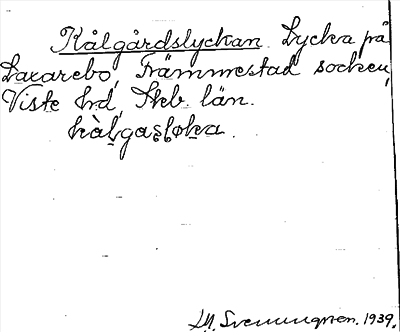 Kålgårdslyckan. Lycka på
Laxarebo, Främmestad socken,
Viste hrd, Skb. län.
kàlgaʂl̥øka.
Svenungsson. 1939.